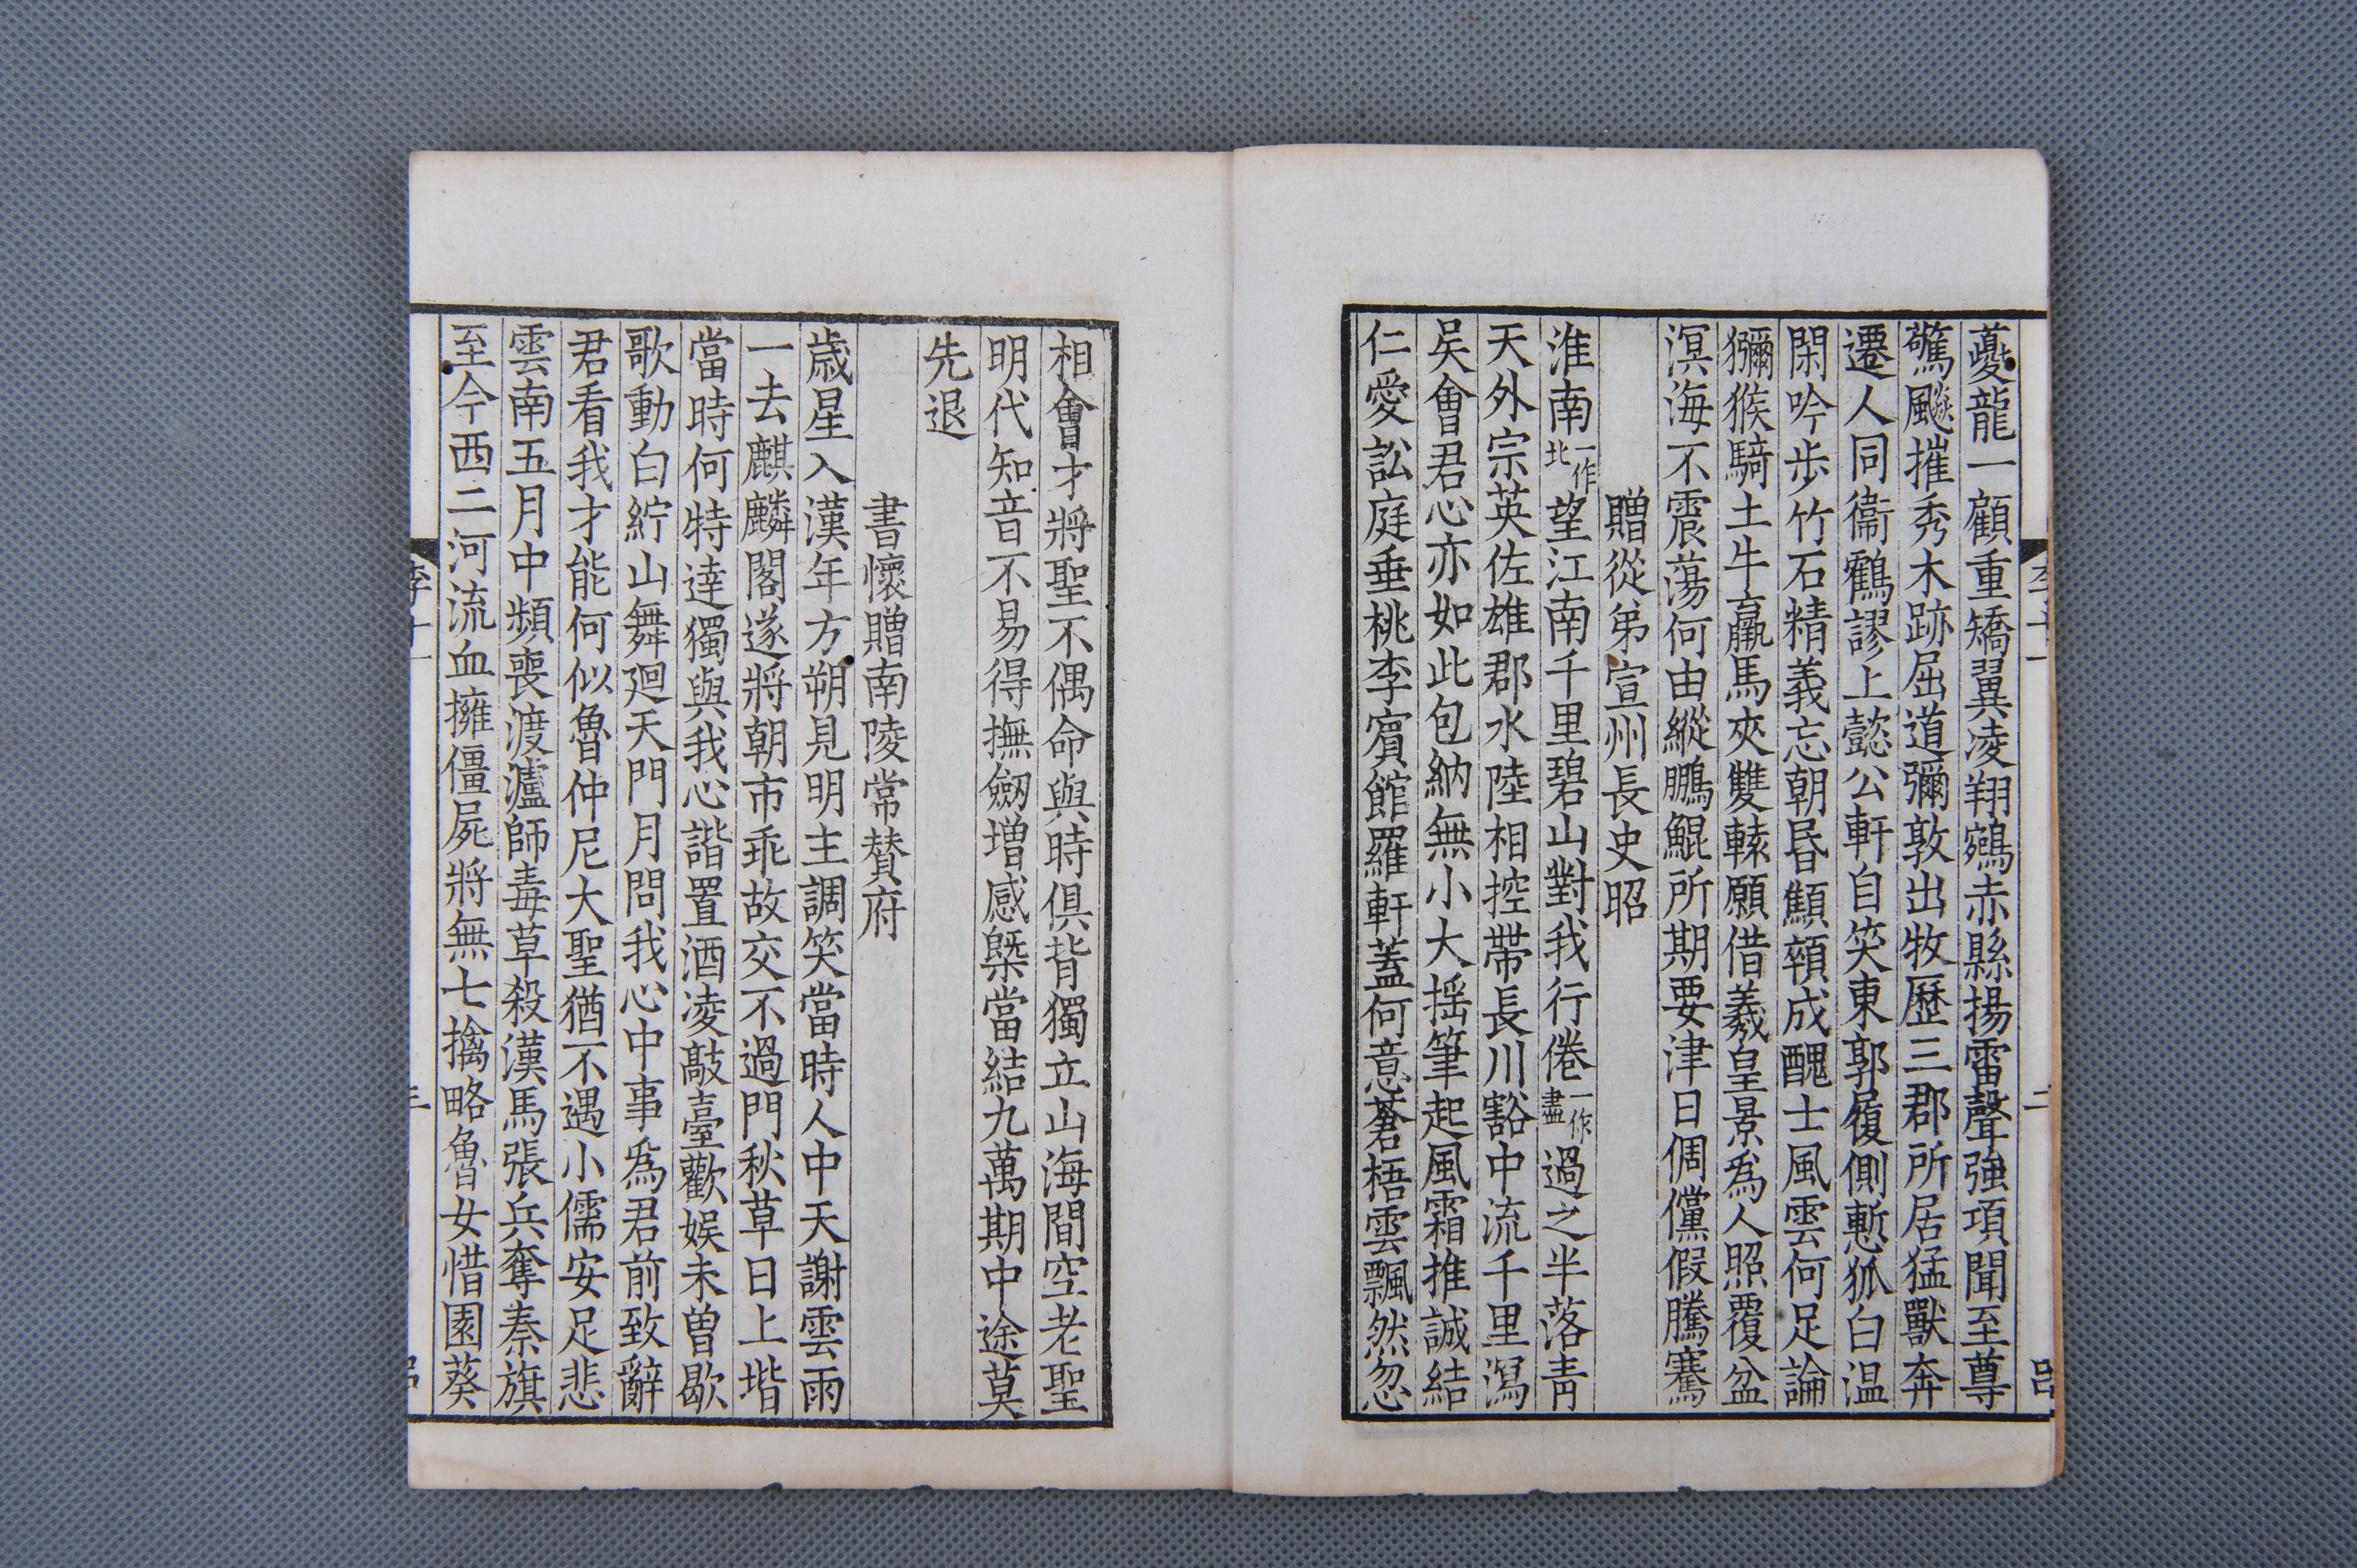 夔龍一顧重矯翼凌翔鵷赤縣揚雷聲強項聞至尊
驚飇摧秀木跡屈道彌敦出牧歷三郡所居猛獸奔
遷人同衞鶴謬上懿公軒自笑東郭履側慙狐白温
閑吟步竹石精義忘朝昏顦顇成醜士風雲何足論
獼猴騎土牛羸馬夾雙轅願借羲皇景爲人照覆盆
溟海不震蕩何由縱鵬鯤所期要津日倜儻假騰騫
贈從弟宣州長史昭
淮南一作北望江南千里碧山對我行倦一作盡過之半落青
天外宗英佐雄郡水陸相控帶長川豁中流千里瀉
吳會君心亦如此包納無小大揺筆起風霜推誠結
仁愛訟庭垂桃李賔館羅軒蓋何意蒼梧雲飄然忽
相會才將聖不偶命與時俱背獨立山海間空老聖
明代知音不易得撫劒增感槩當結九萬期中途莫
先退
書懷贈南陵常賛府
歲星入漢年方朔見明主調笑當時人中天謝雲雨
一去麒麟閣遂將朝市乖故交不過門秋草日上堦
當時何特達獨與我心諧置酒凌敲臺歡娛未曾歇
歌動白紵山舞廻天門月問我心中事爲君前致辭
君看我才能何似魯仲尼大聖猶不遇小儒安足悲
雲南五月中頻喪渡瀘師毒草殺漢馬張兵奪秦旗
至今西二河流血擁僵屍將無七擒略魯女惜園葵